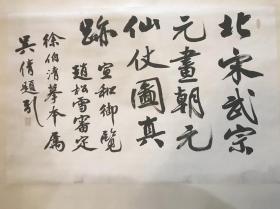 北宋武宗
元畫朝元
仙仗圖真
跡
宣和御覽
趙松雪審定
徐伯清摹本屬
吳倩題引